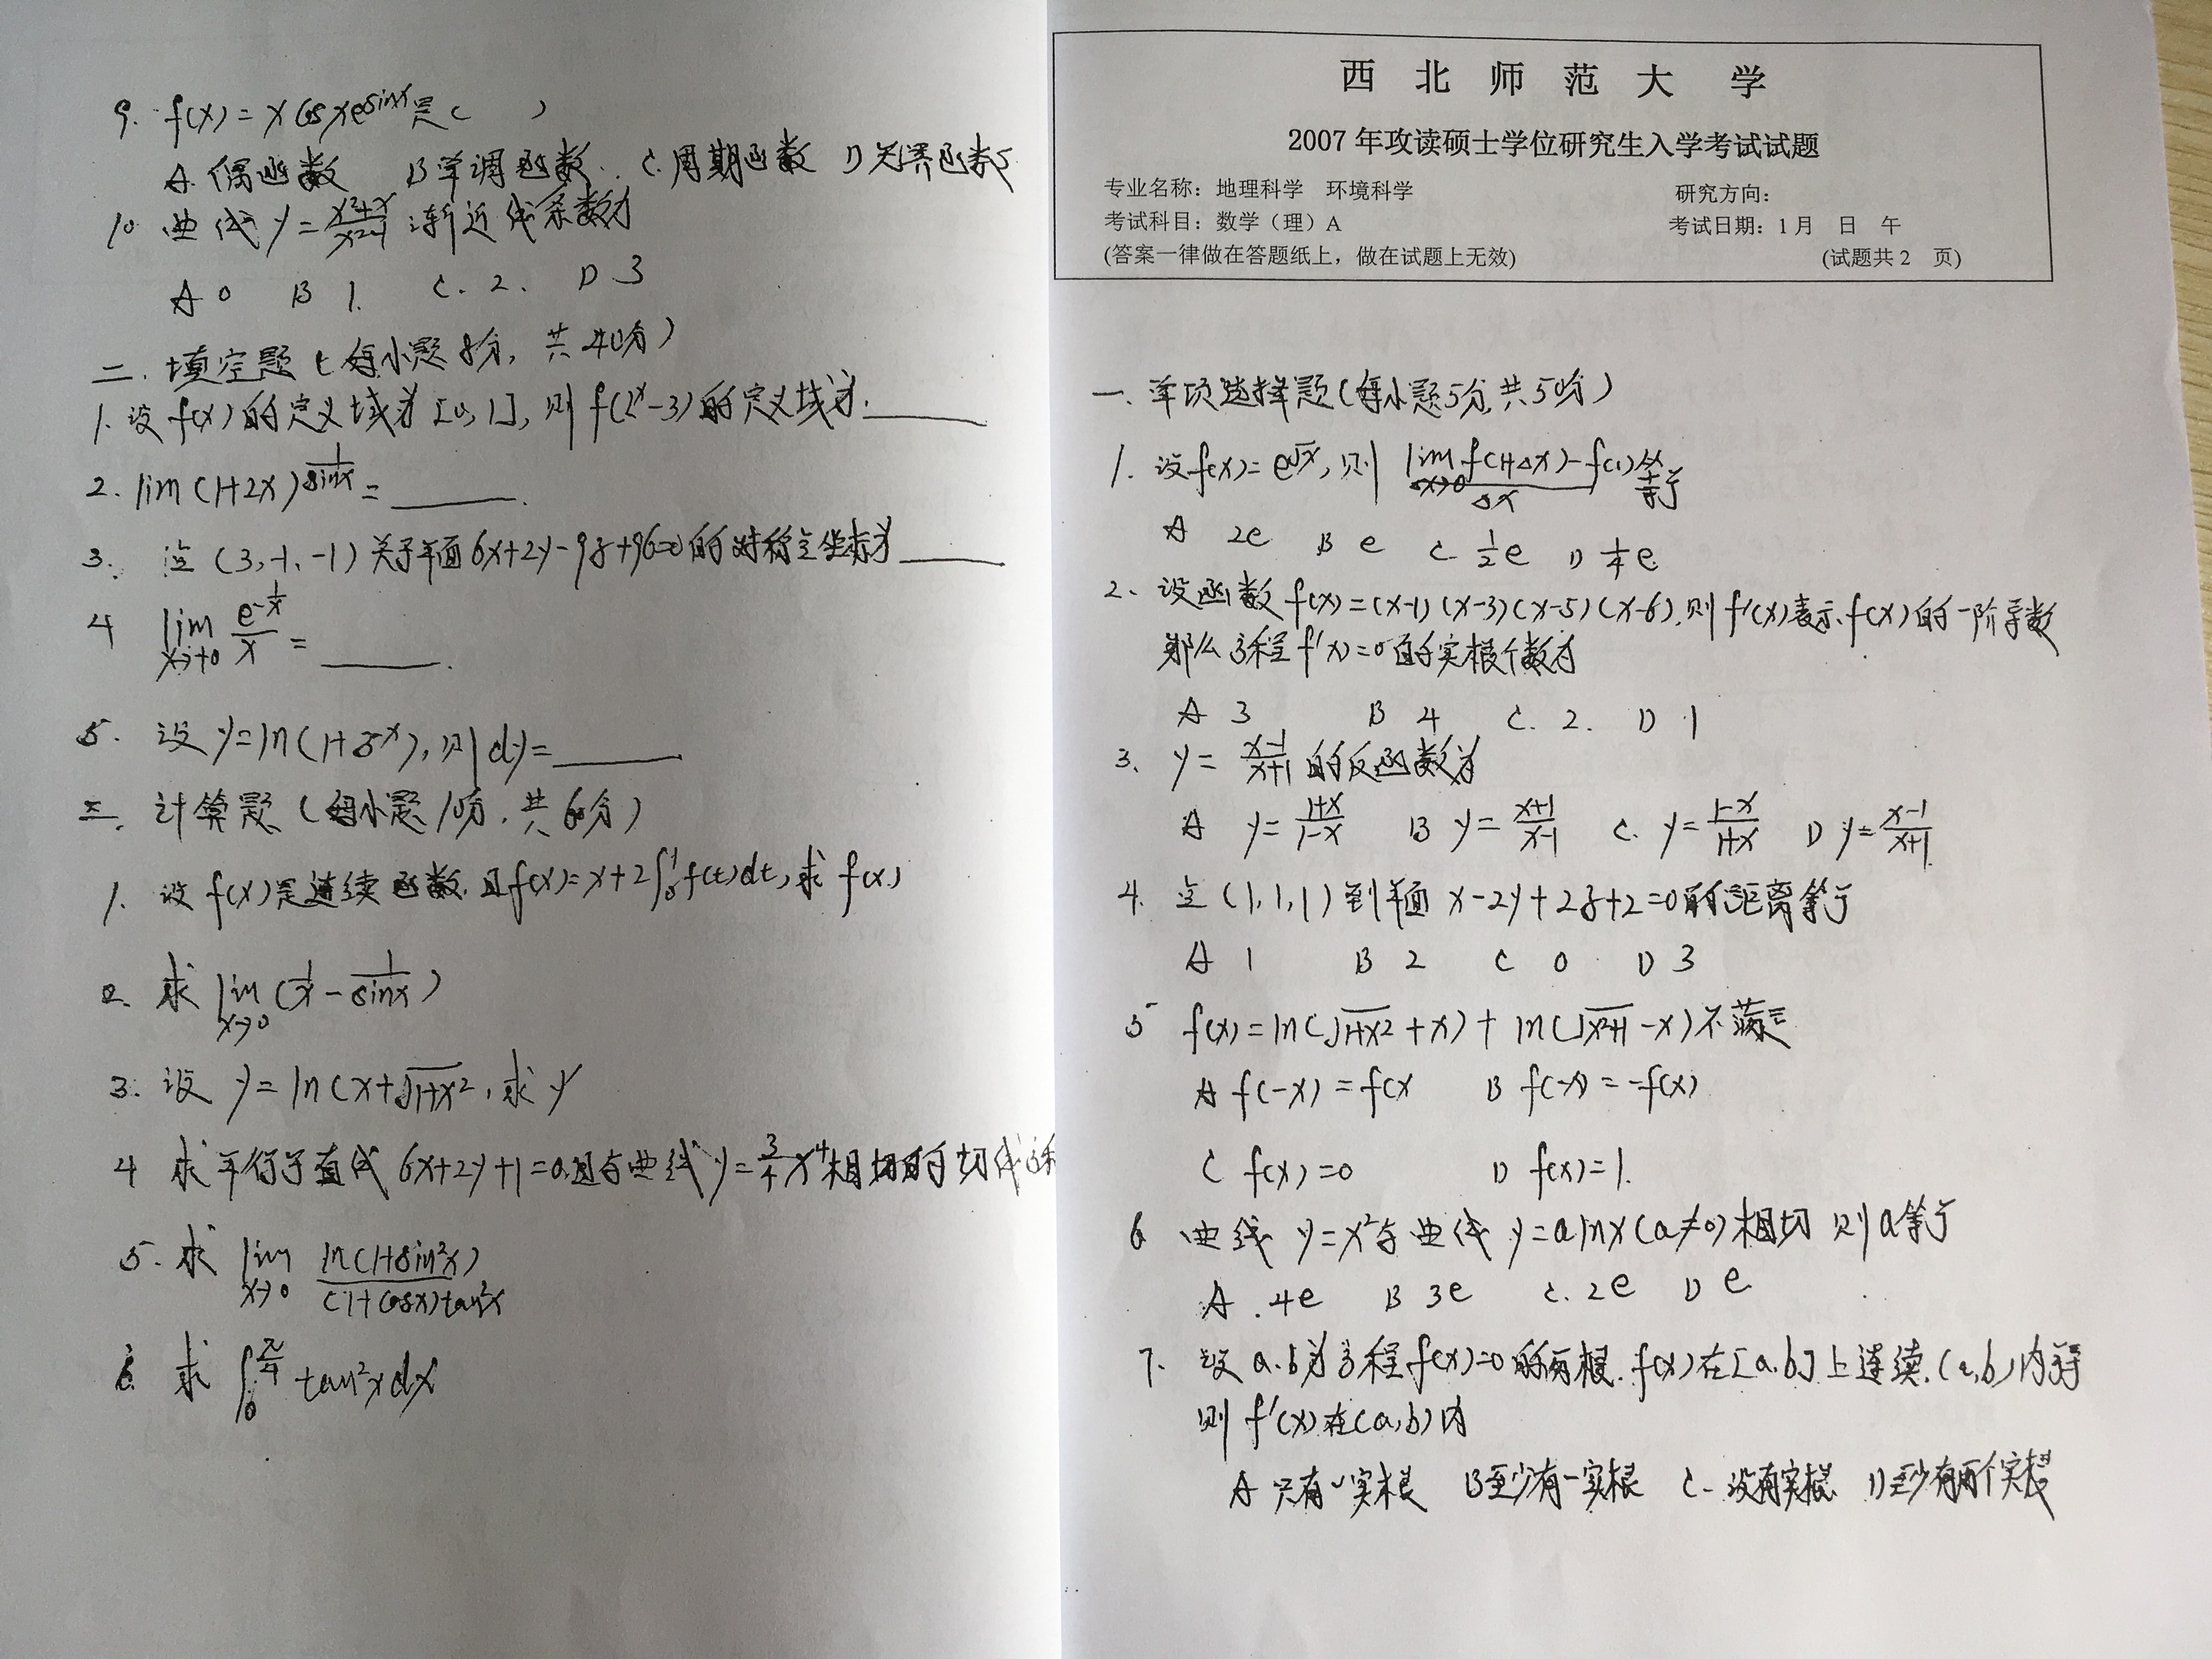 西北师范大学
2007年攻读硕士学位研究生入学考试试题
专业名称：地理科学 环境科学 研究方向：
考试科目：数学（理）A 考试日期：1月 日 午
(答案一律做在答题纸上，做在试题上无效) (试题共2 页)
一、单项选择题(每小题5分,共50分)
1. 设f(x)=e^√x,则 lim_{Δx→0} (f(1+Δx)-f(1))/Δx 等于
A 2e B e C 1/2 e D 1/4 e
2、设函数f(x)=(x-1)(x-3)(x-5)(x-6),则f'(x)表示f(x)的一阶导数
那么方程f'(x)=0的实根个数为
A 3 B 4 C. 2. D 1
3、y= (x-1)/(x+1) 的反函数为
A y= (1+x)/(1-x) B y= (x+1)/(x-1) C. y= (1-x)/(1+x) D y= (x-1)/(x+1)
4. 点(1,1,1)到平面 x-2y+2z+2=0的距离等于
A 1 B 2 C 0 D 3
5 f(x)=ln(√(1+x²)+x)+ ln(√(x²+1)-x)不满足
A f(-x)=f(x B f(-x)=-f(x)
C f(x)=0 D f(x)=1.
6 曲线 y=x²与曲线 y=alnx(a≠0)相切 则a等于
A. 4e B 3e C. 2e D e
7. 设a.b为方程f(x)=0的两根.f(x)在[a.b]上连续.(a,b)内
则 f'(x)在(a,b)内
A 只有一实根 B至少有一实根 C- 没有实根 D至少有两个实根
9. f(x)=xcosxe^sinx是( )
A.偶函数 B单调函数. C.周期函数 D无界函数
10 曲线y= (x²+x)/(x²-1) 渐近线条数为
A 0 B 1. C. 2. D 3
二.填空题(每小题8分,共40分)
1.设f(x)的定义域为[0,1],则f(2^x-3)的定义域为.
2. lim(1+2x)^(1/sinx)=
3. 点(3,-1,-1)关于平面6x+2y-9z+96=0的对称点坐标为
4 lim_{x→+0} e^(-1/x)/x =
5. 设y=ln(1+5^x),则dy=
三.计算题(每小题10分.共60分)
1. 设f(x)是连续函数.且f(x)=x+2∫₀¹f(t)dt,求f(x)
2. 求 lim_{x→0} (1/x - 1/sinx)
3. 设 y=ln(x+√(1+x²),求y'
4 求平行于直线 6x+2y+1=0.且与曲线y= 3/4 x⁴相切的切线方程
5. 求 lim_{x→0} ln(1+sin²x)/((1+cosx)tan²x)
6. 求∫₀^(π/4) tan²xdx